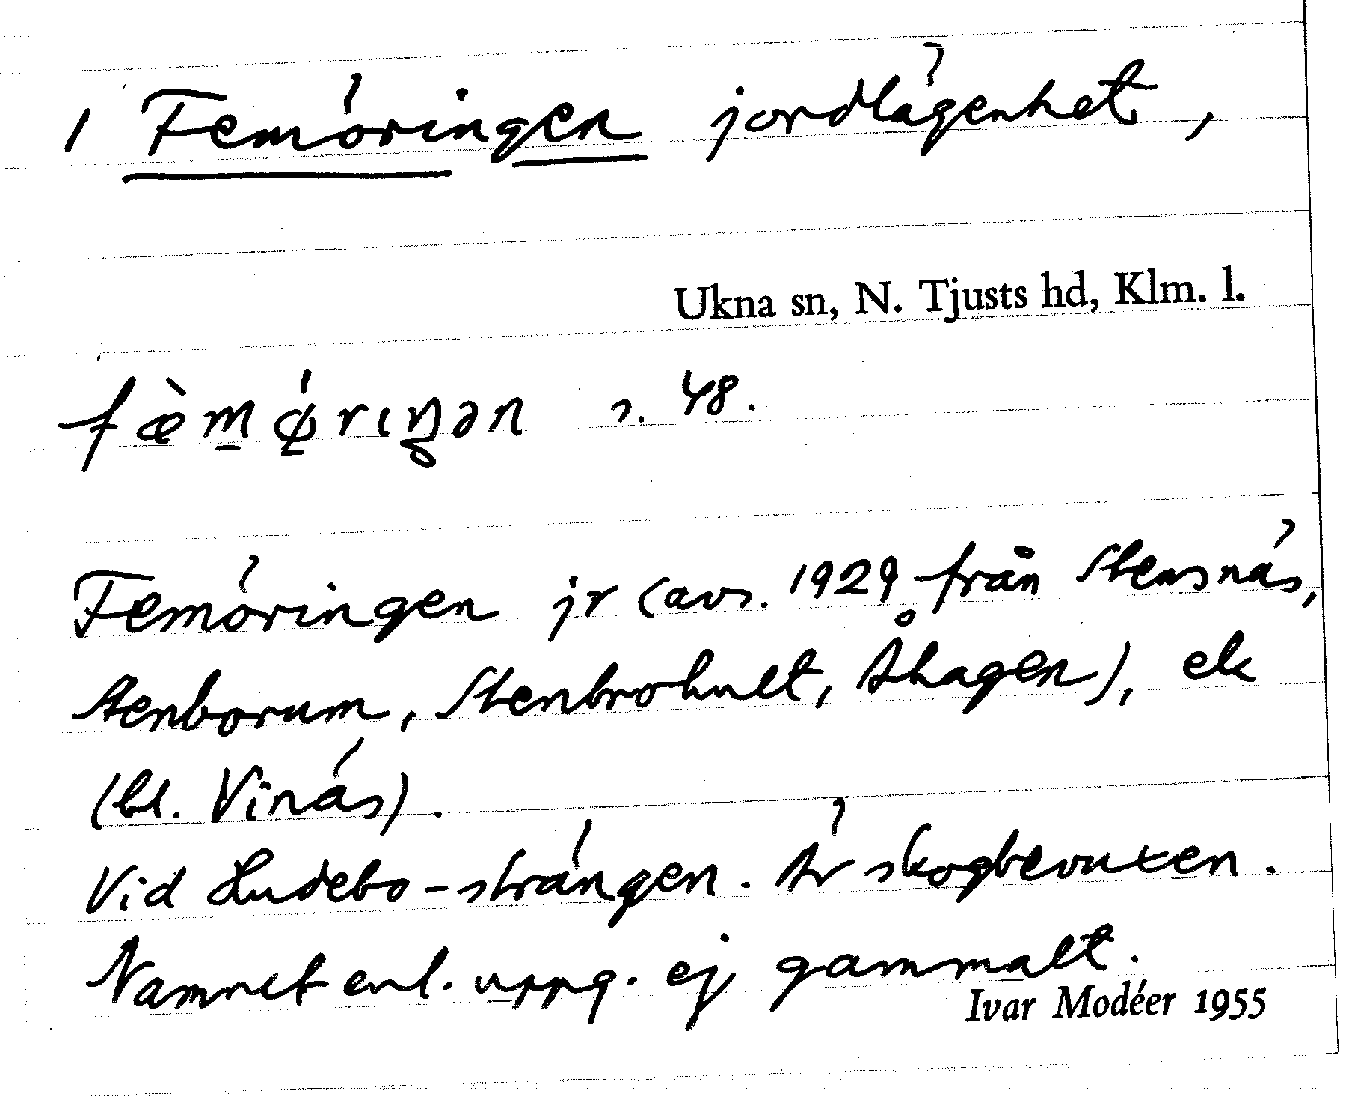 1 Femöringen jordlägenhet,
Ukna sn, N. Tjusts hd, Klm. l.
fæ̀mǿrɩŋən s. 48.
Femöringen jr (avs. 1929 från Stensnäs,
Stenborum, Stenbrohult, Åhagen), ek
(bl. Vinäs).
Vid Ludebo-strängen. Är skogbevuxen.
Namnet enl. uppg. ej gammalt.
Ivar Modéer 1955